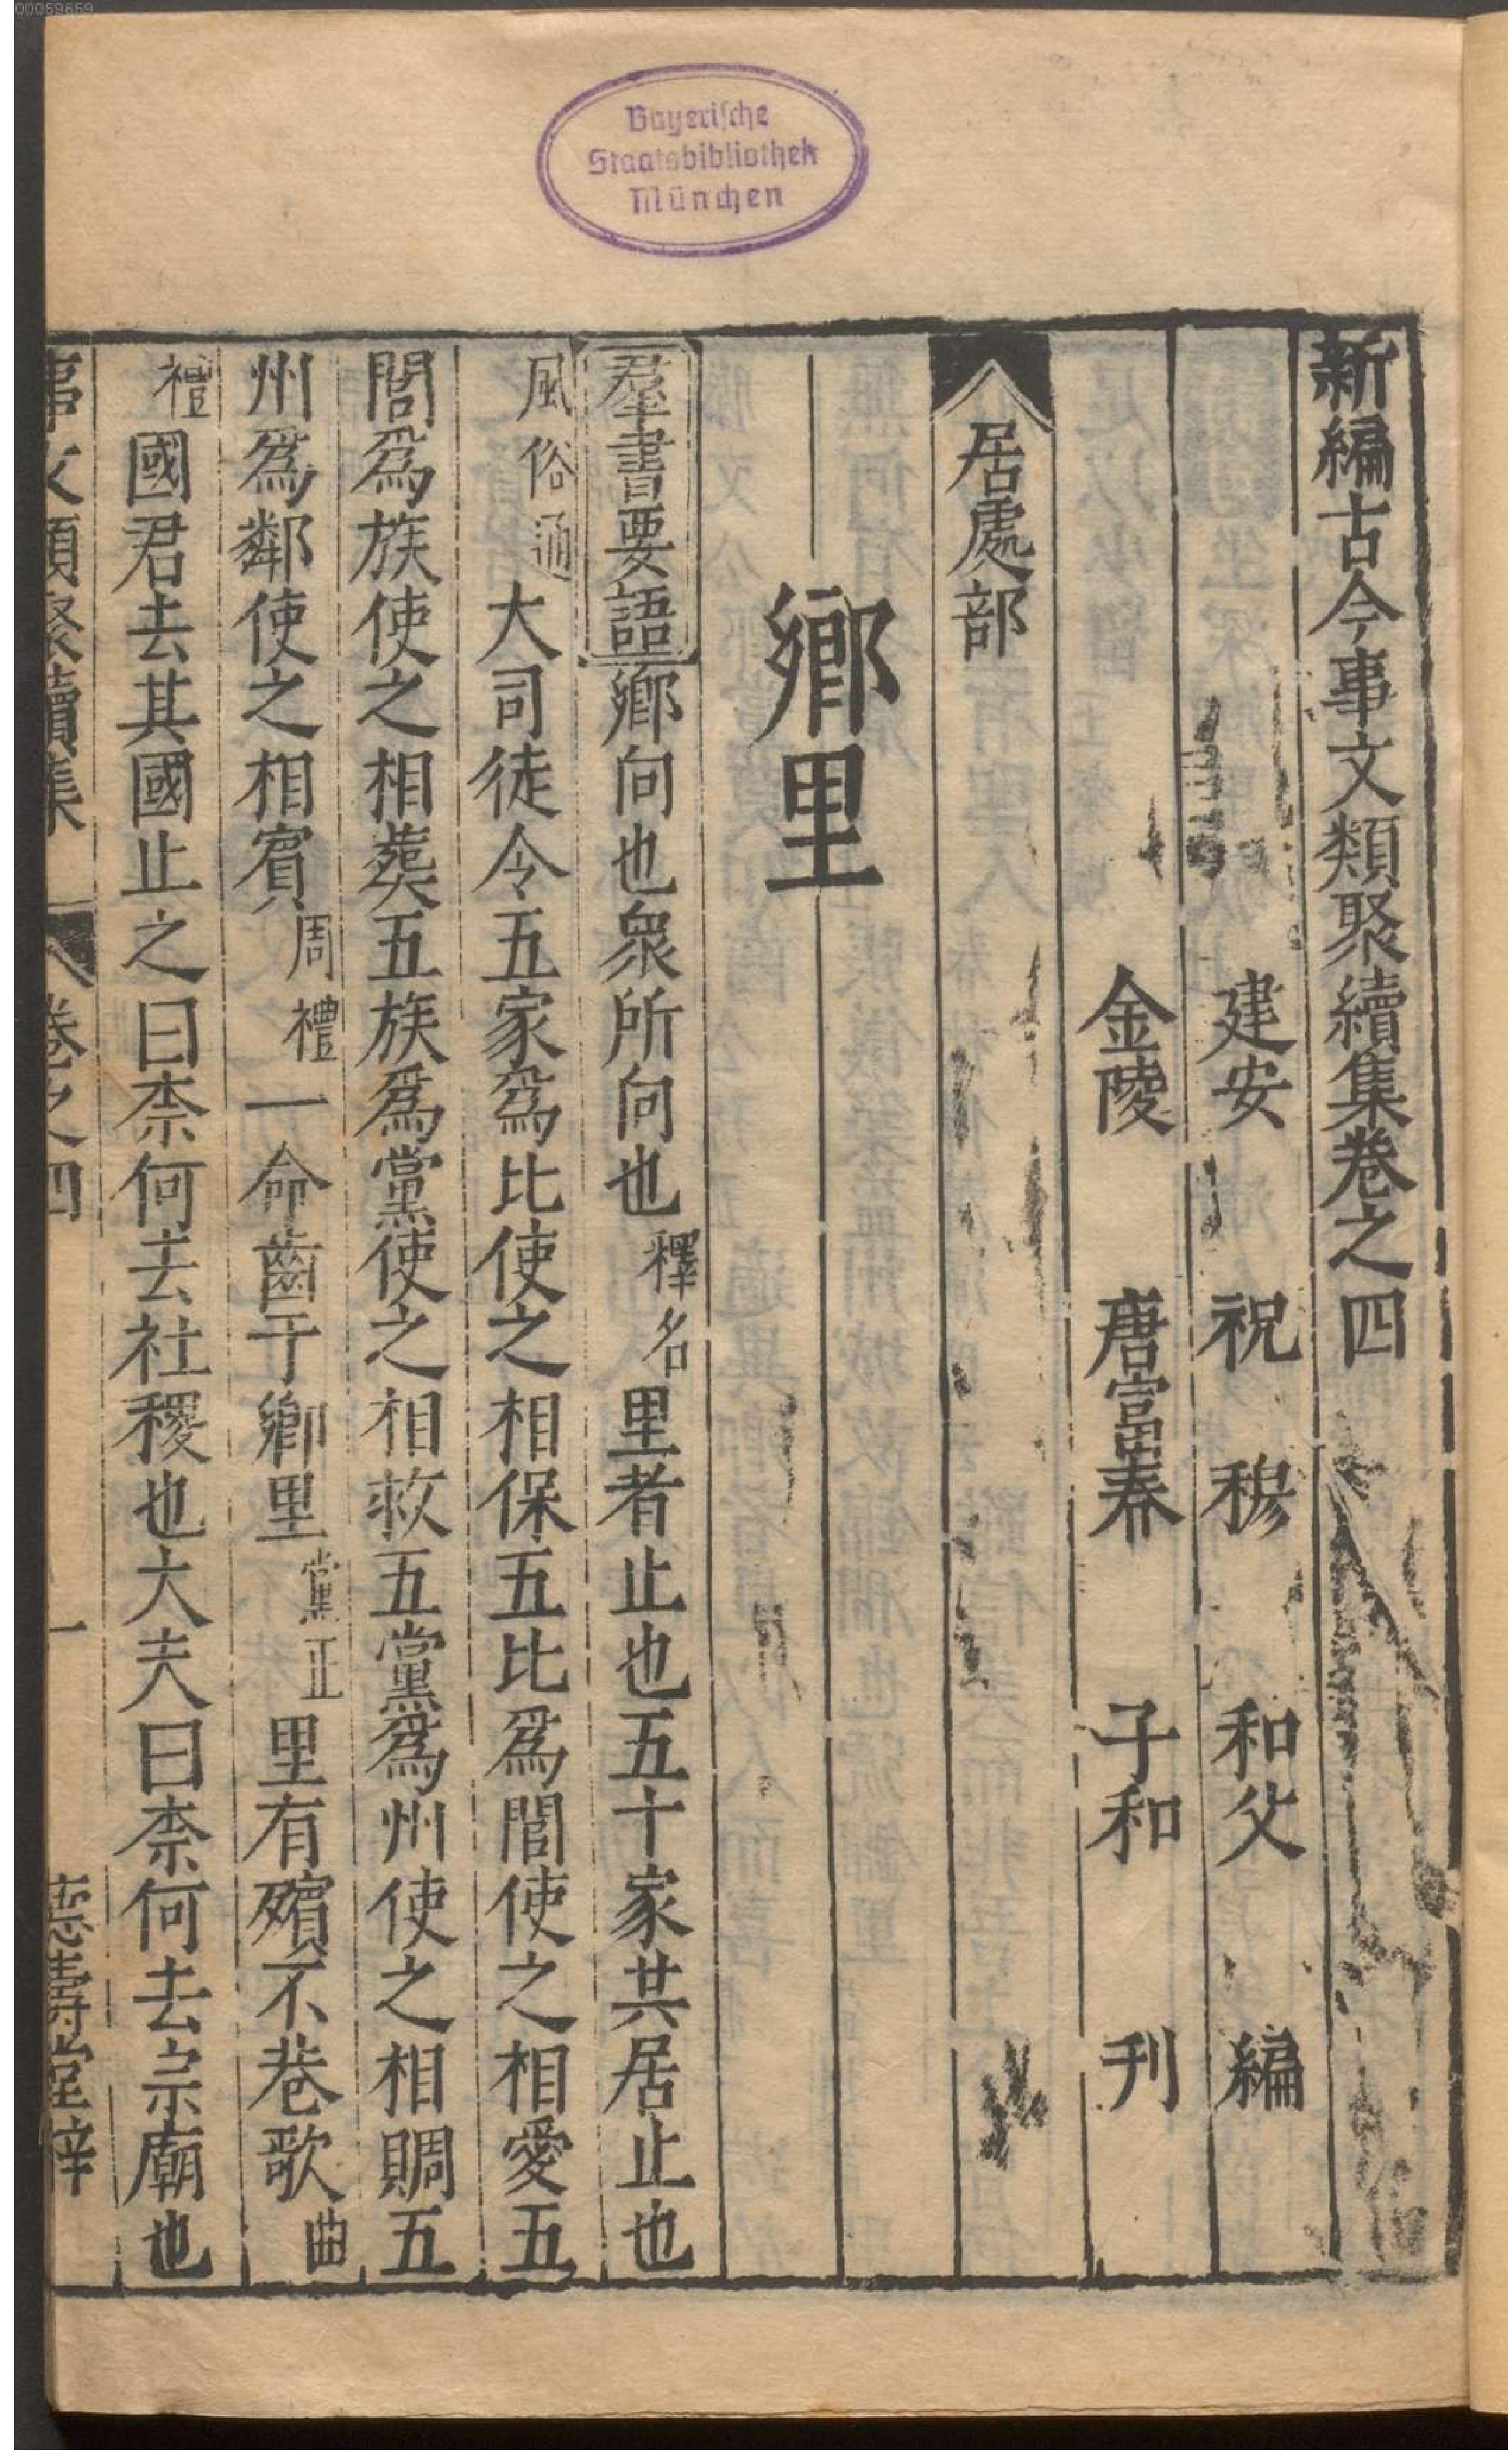 00059659
Bayerische
Staatsbibliothek
München
新編古今事文類聚續集卷之四
建安 祝穆 和父 編
金陵 唐富春 子和 刊
居處部
鄉里
羣書要語鄉向也衆所向也釋名里者止也五十家共居止也
風俗通大司徒令五家爲比使之相保五比爲閭使之相愛五
閭爲族使之相葬五族爲黨使之相救五黨爲州使之相賙五
州爲鄰使之相賓周禮一命齒于鄉里黨正里有殯不巷歌曲
禮國君去其國止之曰柰何去社稷也大夫曰柰何去宗廟也
事文類聚續集 卷之四 一 德壽堂梓